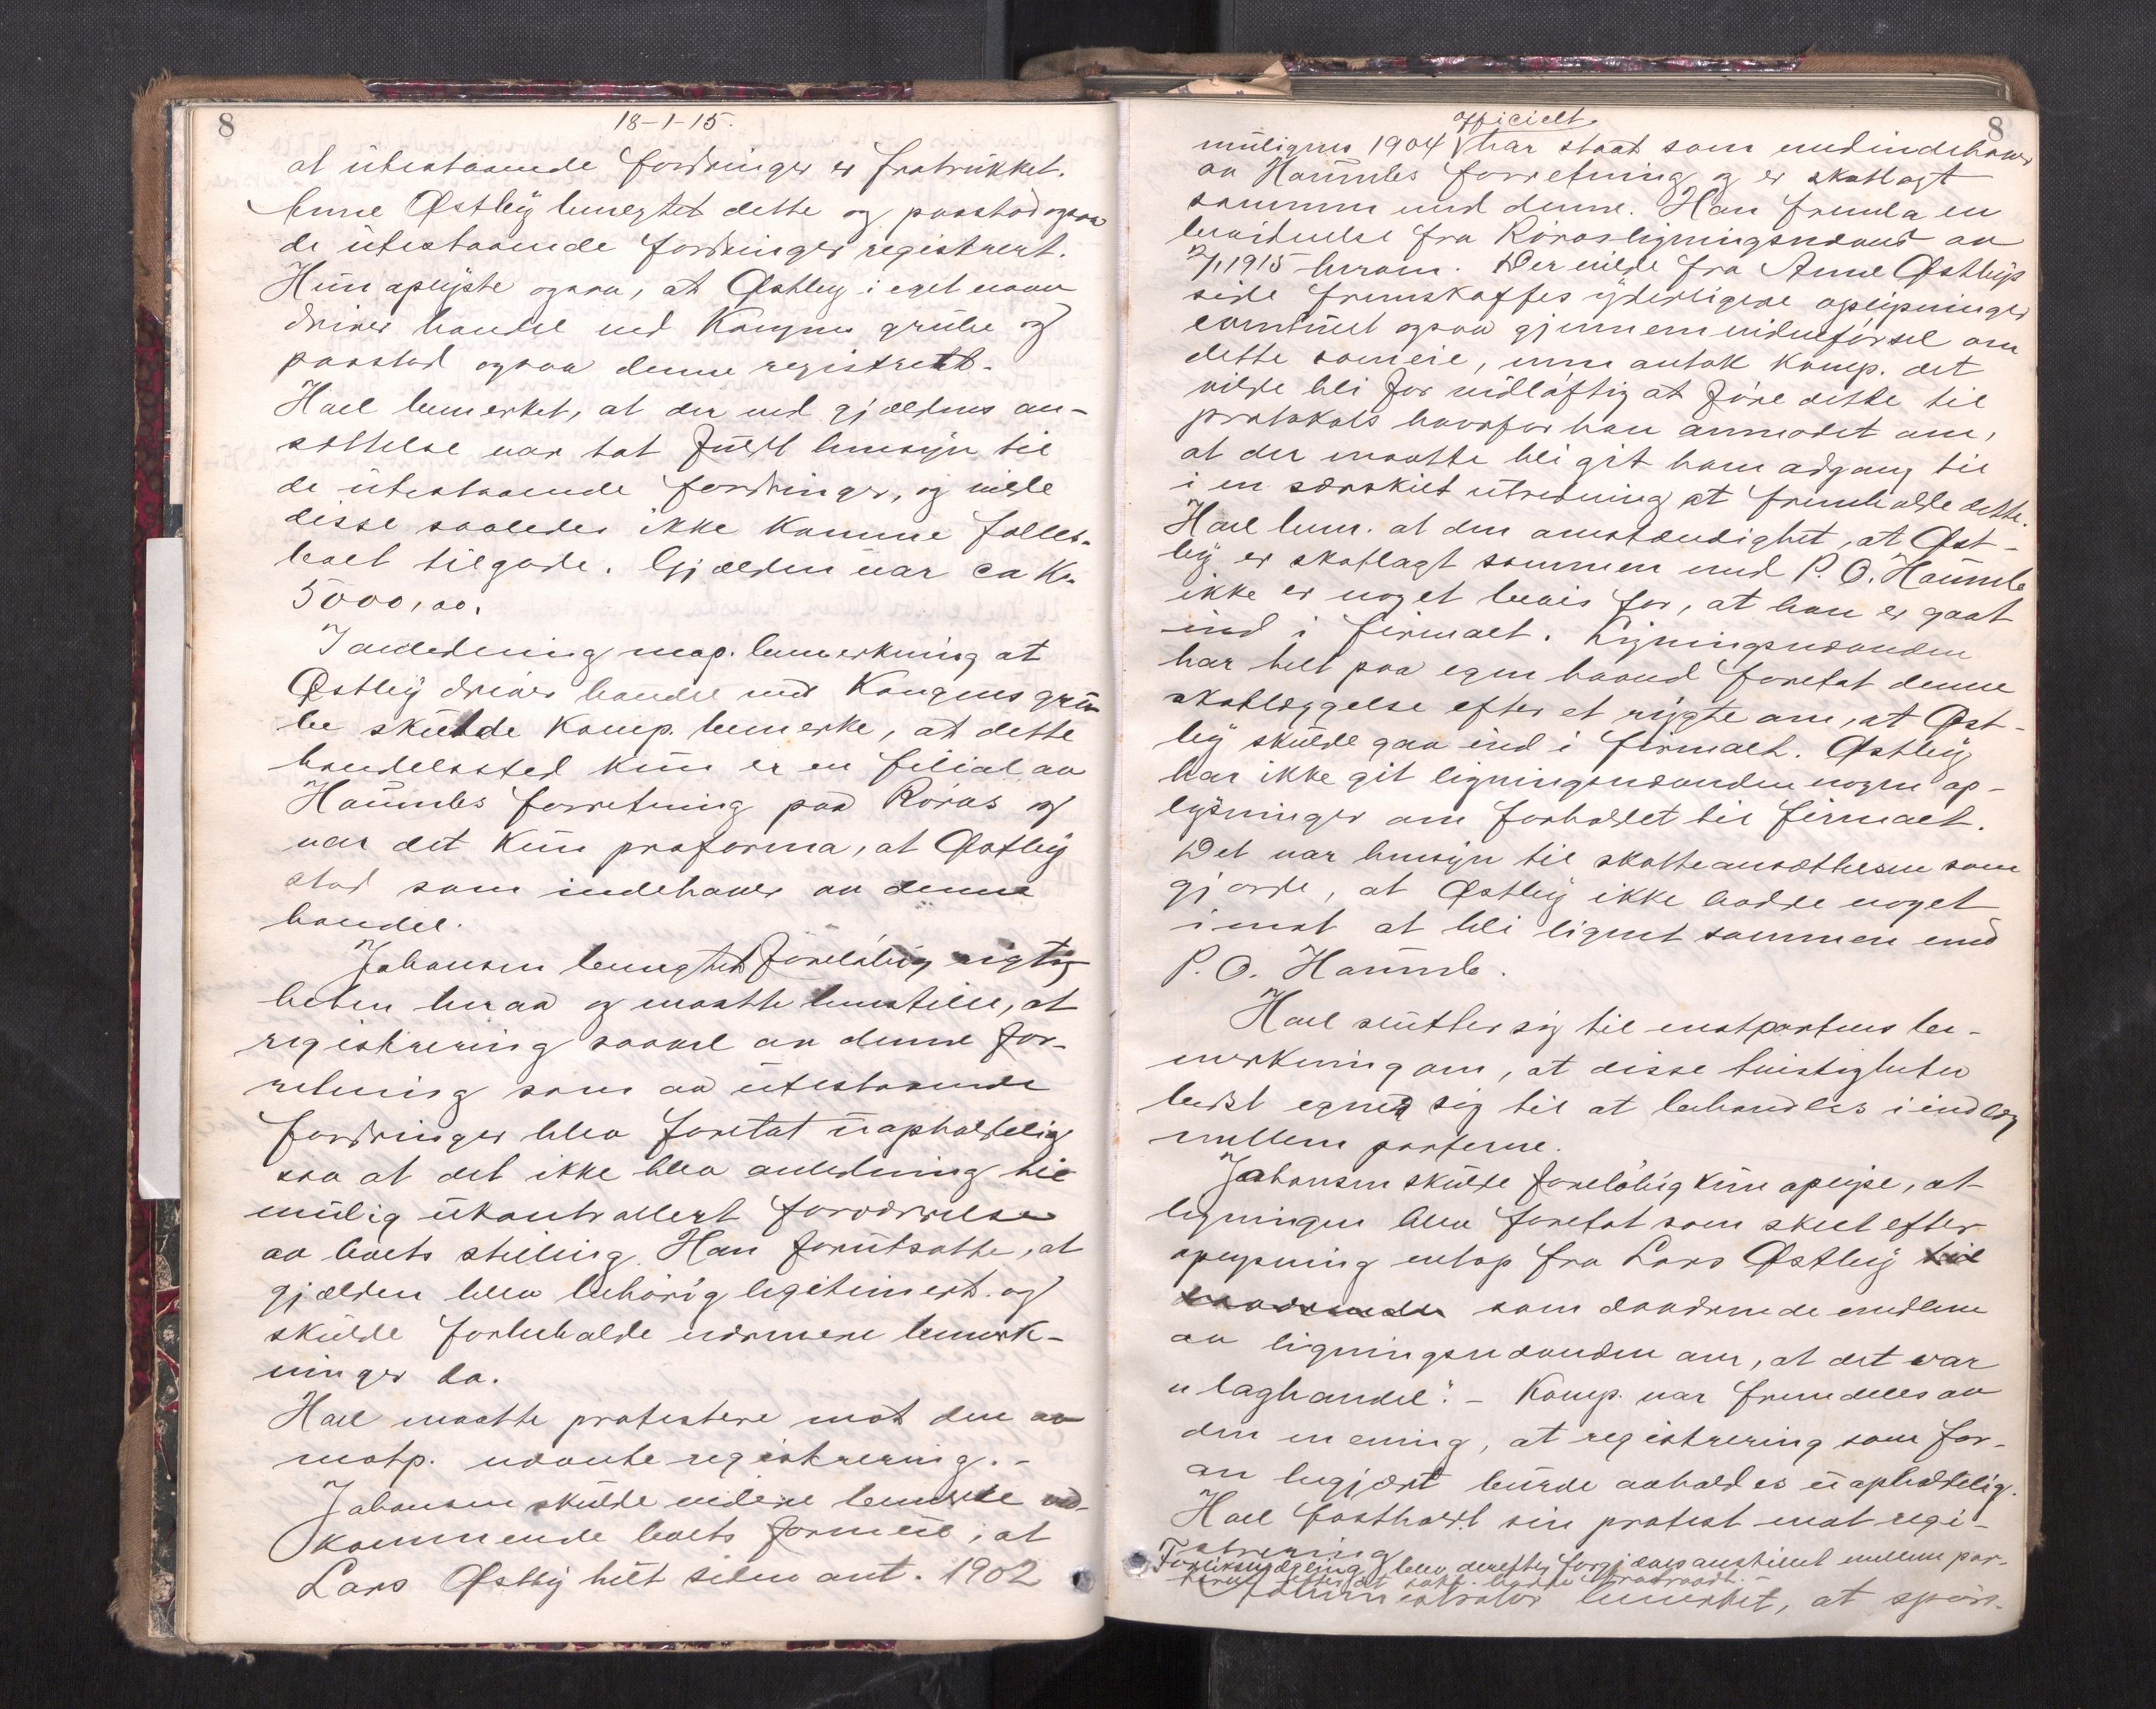 8
18-1-15.
at utestaaende fordringer er fratrukket.
Anne Østby benegtet dette og paastod ogsaa
de utestaaende fordringer registrert.
Hun oplyste ogsaa, at Østby i eget navn
driver handel ved Kongens grube og
paastod ogsaa denne registrert.
Hael bemerket, at der ved gjældens an-
sættelse var tat fuldt hensyn til
de utestaaende fordringer, og vilde
disse saaledes ikke komme fælles-
boet tilgode. Gjælden var ca Kr.
5000,00.
I anledning mop. bemerkning at
Østby driver handel ved Kongens gru-
be skulde Komp. bemerke, at dette
handelssted kun er en filial av
Haumbs forretning paa Röros og
var det kun proforma, at Østby
stod som indehaver av denne
handel.
Johansen benegtet foreløbig rigtig-
heten herav og maatte henstille, at
registrering saavel av denne for-
retning som av utestaaende
fordringer blev foretat uopholdelig
saa at det ikke blev anledning til
mulig ukontrollert forværrelse
av boets stilling. Han forutsatte, at
gjælden blev behörig legitimert og
skulde forbeholde nærmere bemerk-
ninger da.
Hael maatte protestere mot den av
motp. nævnte registrering. -
Johansen skulde videre bemerke ved-
kommende boets formue, at
Lars Østby helt siden ant. 1902
8
officielt
muligens 1904 har staat som medindehaver
av Haumbs forretning og er skatlagt
sammen med denne. Han fremla en
bevidnelse fra Röros ligningsnævnd av
7/1 1915 herom. Der vilde fra Anne Østbys
side fremskaffes yderligere oplysninger
eventuelt ogsaa gjennem vidneførsel om
dette sameie, men antok Komp. det
vilde bli for vidløftig at føre dette til
protokols hvorfor han anmodet om,
at der maatte bli git ham adgang til
i en særskilt utredning at fremholde dette.
Hael bem. at den omstændighet, at Øst-
by er skatlagt sammen med P. O. Haumb
ikke er noget bevis for, at han er gaat
ind i firmaet. Ligningsnævnden
har helt paa egen haand foretat denne
skatlæggelse efter et rygte om, at Øst-
by skulde gaa ind i firmaet. Østby
har ikke git ligningsnævnden nogen op-
lysninger om forholdet til firmaet.
Det var hensyn til skatteansættelsen som
gjorde, at Østby ikke hadde noget
imot at bli lignet sammen med
P. O. Haumb.
Hael slutter sig til motpartens be-
merkning om, at disse tvistigheter
bedst egner sig til at behandles i indlæg
mellem parterne.
Johansen skulde foreløbig kun oplyse, at
ligningen blev foretat som skeet efter
oplysning netop fra Lars Østby til
daværende som daværende medlem
av ligningsnævnden om, at det var
"laghandel". - Komp. var fremdeles av
den mening, at registrering som for-
an begjært burde avholdes uopholdelig.
Hael fastholdt sin protest mot regi-
strering
Forliksmægling blev derefter forgjæves anstillet mellem par-
terne efter at sakf. hadde fratraadt. -
Administrator bemerket, at spörs-